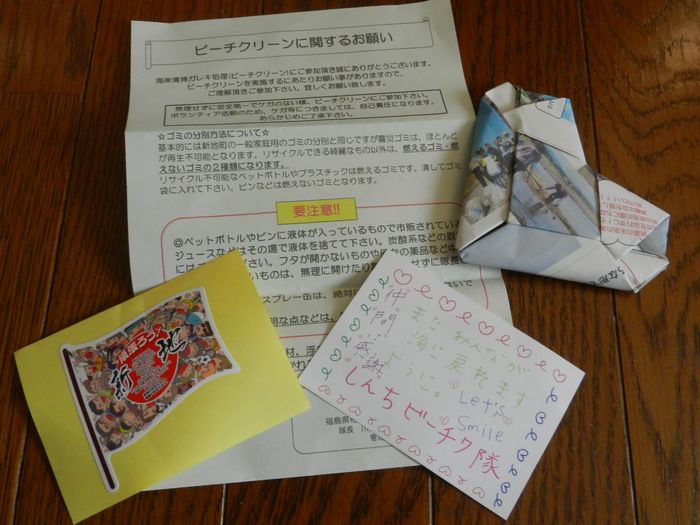 ビーチクリーンに関するお願い
海岸清掃ガレキ処理(ビーチクリーン)にご参加頂き誠にありがとうございます。
ビーチクリーンを実施するにあたりお願い事がありますので、
ご理解頂きご参加下さい。宜しくお願い致します。
無理せずに安全第一でケガのない様、ビーチクリーンにご参加下さい。
ボランティア活動のため、ケガ等につきましては、自己責任になります。
あらかじめご了承下さい。
☆ゴミの分別方法について☆
基本的には新地町の一般家庭用のゴミの分別と同じですが震災ゴミは、ほとんど
が再生不可能となります。リサイクルできる綺麗なもの以外は、燃えるゴミ・燃
えないゴミの2種類になります。
リサイクル不可能なペットボトルやプラスチックは燃えるゴミです。潰してゴミ
袋に入れて下さい。ビンなどは燃えないゴミとなります。
要注意!!
◎ペットボトルやビンに液体が入っているもので市販されている
ジュースなどはその場で液体を捨てて下さい。炭酸系などの
フタが開かないものや
いものは、無理に開けたり
せずに隊長
スプレー缶は、絶対に
明な点などは、
福島県
隊長
頑張ろう!!
新地
仲間感謝
またみんなが
海に戻れます
ように。
Let's
Smile
しんちビーチク隊